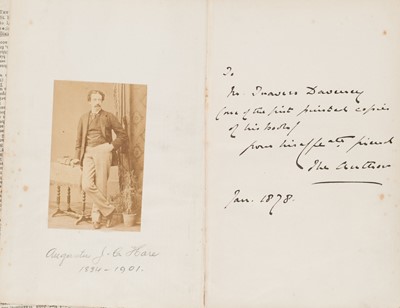 Augustus J. C. Hare
1834-1901.
To
Mr. Francis Daveney
(one of the first printed copies
of his book)
from his affecte friend
The Author
Jan. 1878.